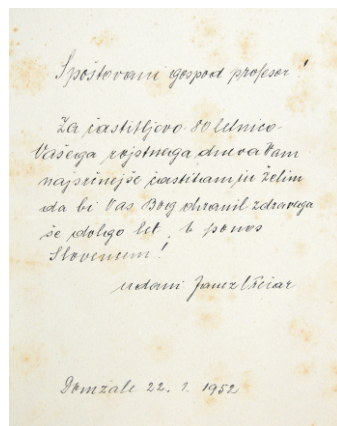 Spoštovani gospod profesor!
Za častitljevo 80 letnico
Vašega rojstnega dneva Vam
najsrčnejše častitam in želim
da bi Vas Bog ohranil zdravega
še dolgo let, v ponos
Slovencem!
udani Janez
Domžale 22. 1. 1952